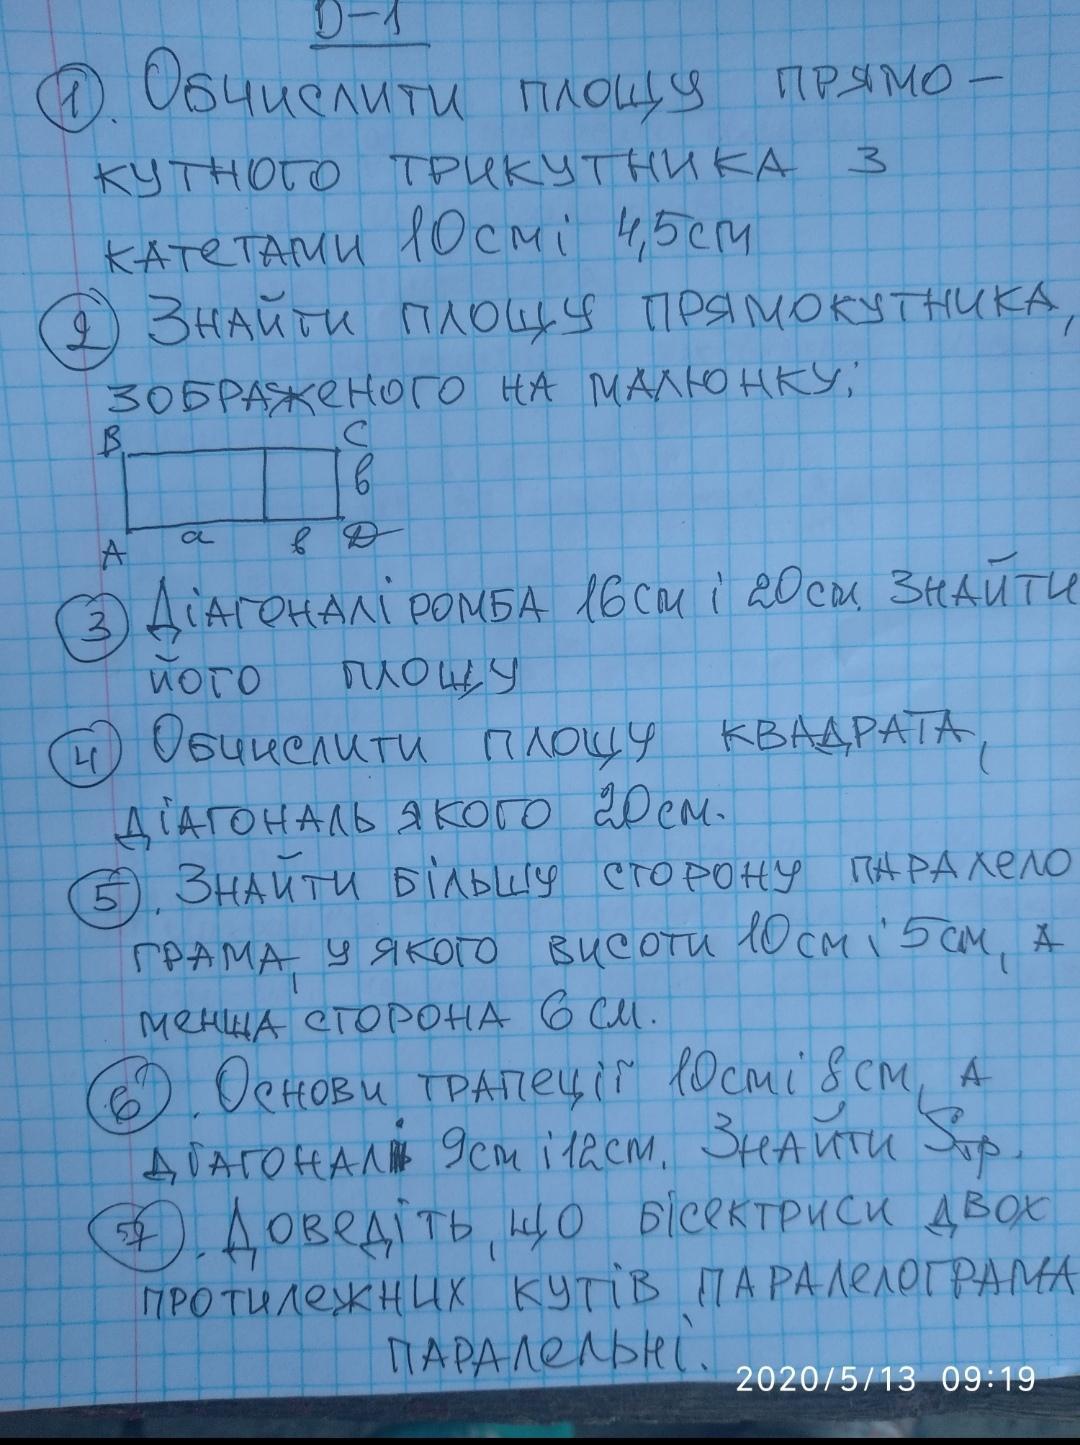 D-1
1. Обчислити площу прямо-
кутного трикутника з
катетами 10см і 4,5см
2 Знайти площу прямокутника,
зображеного на малюнку:
B C
в
A а в D
3 Діагоналі ромба 16см і 20см. Знайти
його площу
4 Обчислити площу квадрата,
діагональ якого 20см.
5. Знайти більшу сторону паралело
грама, у якого висоти 10см і 5см, а
менша сторона 6см.
6. Основи трапеції 10см і 8см, а
діагоналі 9см і 12см. Знайти Sтр.
7. Доведіть, що бісектриси двох
протилежних кутів паралелограма
паралельні.
2020/5/13 09:19